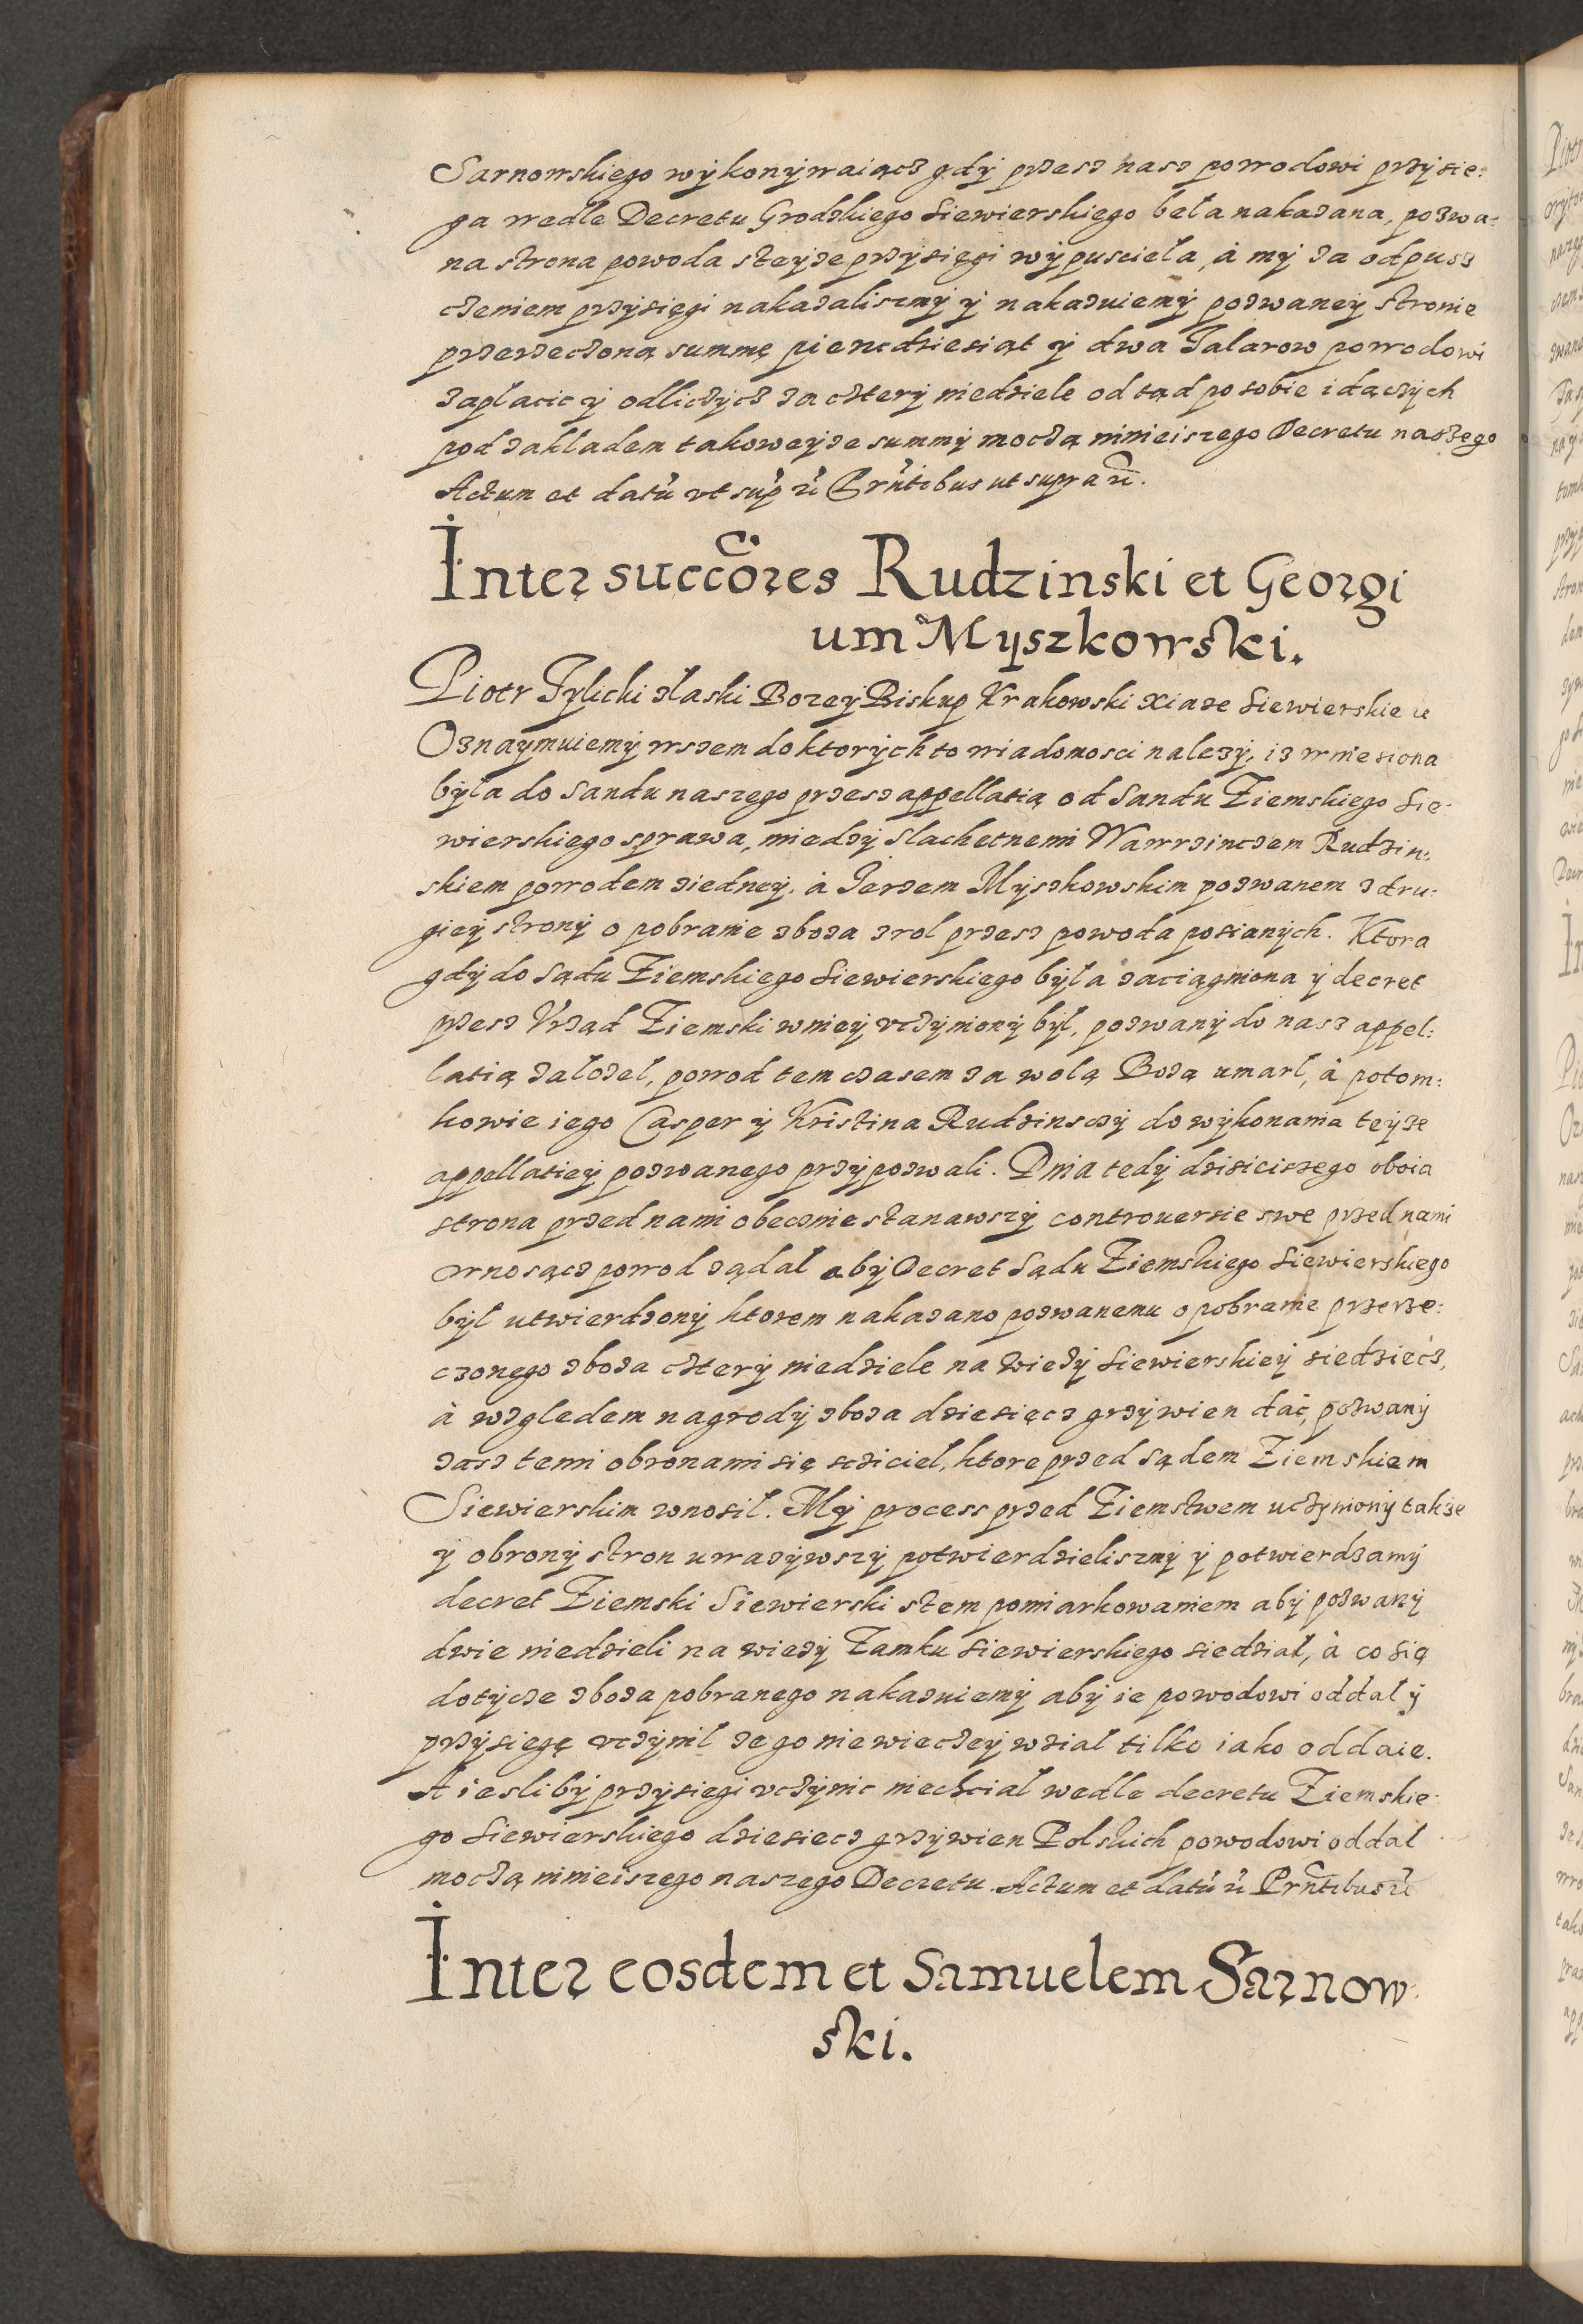 Sarnowskiego wykonywaiącz gdy przesz nasz powodowi przysie:
ga wedle Decretu Grodzkiego Siewierskiego beła nakazana, pozwa-
na strona powoda steyze przysięgi wypusciela, à my za odpusz
czeniem przysięgi nakazaliszmy y nakazuiemy pozwaney stronie
przerzeczoną summę piencdziesiąt y dwa Talarow powodowi
zapłacic y odliczycz za cztery niedziele od tąd po sobie idączych
pod zakladem takoweyze summy moczą ninieiszego Decretu naszego
Actum et datũ vt sup̃ rc̃ Prñtibus ut supra rc̃.
Inter succ̃ores Rudzinski et Georgi
um Myszkowski.
Piotr Tylicki złaski Bozey Biskup Krakowski Xiaze Siewierskie rc
Oznaymuiemy wszem do ktorych to wiadomosci nalezy, iz wniesiona
była do Sandu naszego przesz appellatią od Sandu Ziemskiego Sie-
wierskiego sprawa, miedzy Slachetnemi Wawrzinczem Rudzin:
skiem powodem ziedney, à Jerzem Myszkowskim pozwanem z dru:
giey strony o pobranie zboza zrol przesz powoda posianych. Ktora
gdy do Sądu Ziemskiego Siewierskiego była zaciągniona y decret
przesz Vrząd Ziemski wniey vczyniony był, pozwany do nasz appel:
latią założeł, powod tem czasem za wolą Bozą umarł, à potom:
kowie iego Casper y Kristina Rudzinsczy do wykonania teyze
appellatiey pozwanego przypozwali. Dnia tedy dzisieiszego oboia
strona przed nami obecznie stanawszy controuersie swe przed nami
wnosącz powod ządał aby Decret Sądu Ziemskiego Siewierskiego
był utwierdzony ktorem nakazano pozwanemu o pobranie przerze:
czonego zboza cztery niedziele na wiezy Siewierskiey siedziecz,
à wzgledem nagrody zboza dziesięcz grzywien dać, pozwany
zasz temi obronami się sczicieł, ktore przed Sądem Ziemskiem
Siewierskim wnosil. My process przed Ziemstwem uczyniony takze
y obrony stron uwazywszy potwierdzieliszmy y potwierdzamy
decret Ziemski Siewierski stem pomiarkowaniem aby pozwany
dwie niedzieli na wiezy Zamku Siewierskiego siedział, à co się
dotycze zboza pobranego nakazuiemy aby ie powodowi oddał y
przysięgę vczynil ze go niewieczey wział tilko iako oddaie.
A iesliby przysiegi vczynic niechciał wedle decretu Ziemskie-
go Siewierskiego dziesiecz grzywien Polskich powodowi oddał
moczą ninieiszego naszego Decretu. Actum et datũ rc̃ Prñtibus rc̃
Inter eosdem et Samuelem Sarnow
ski.